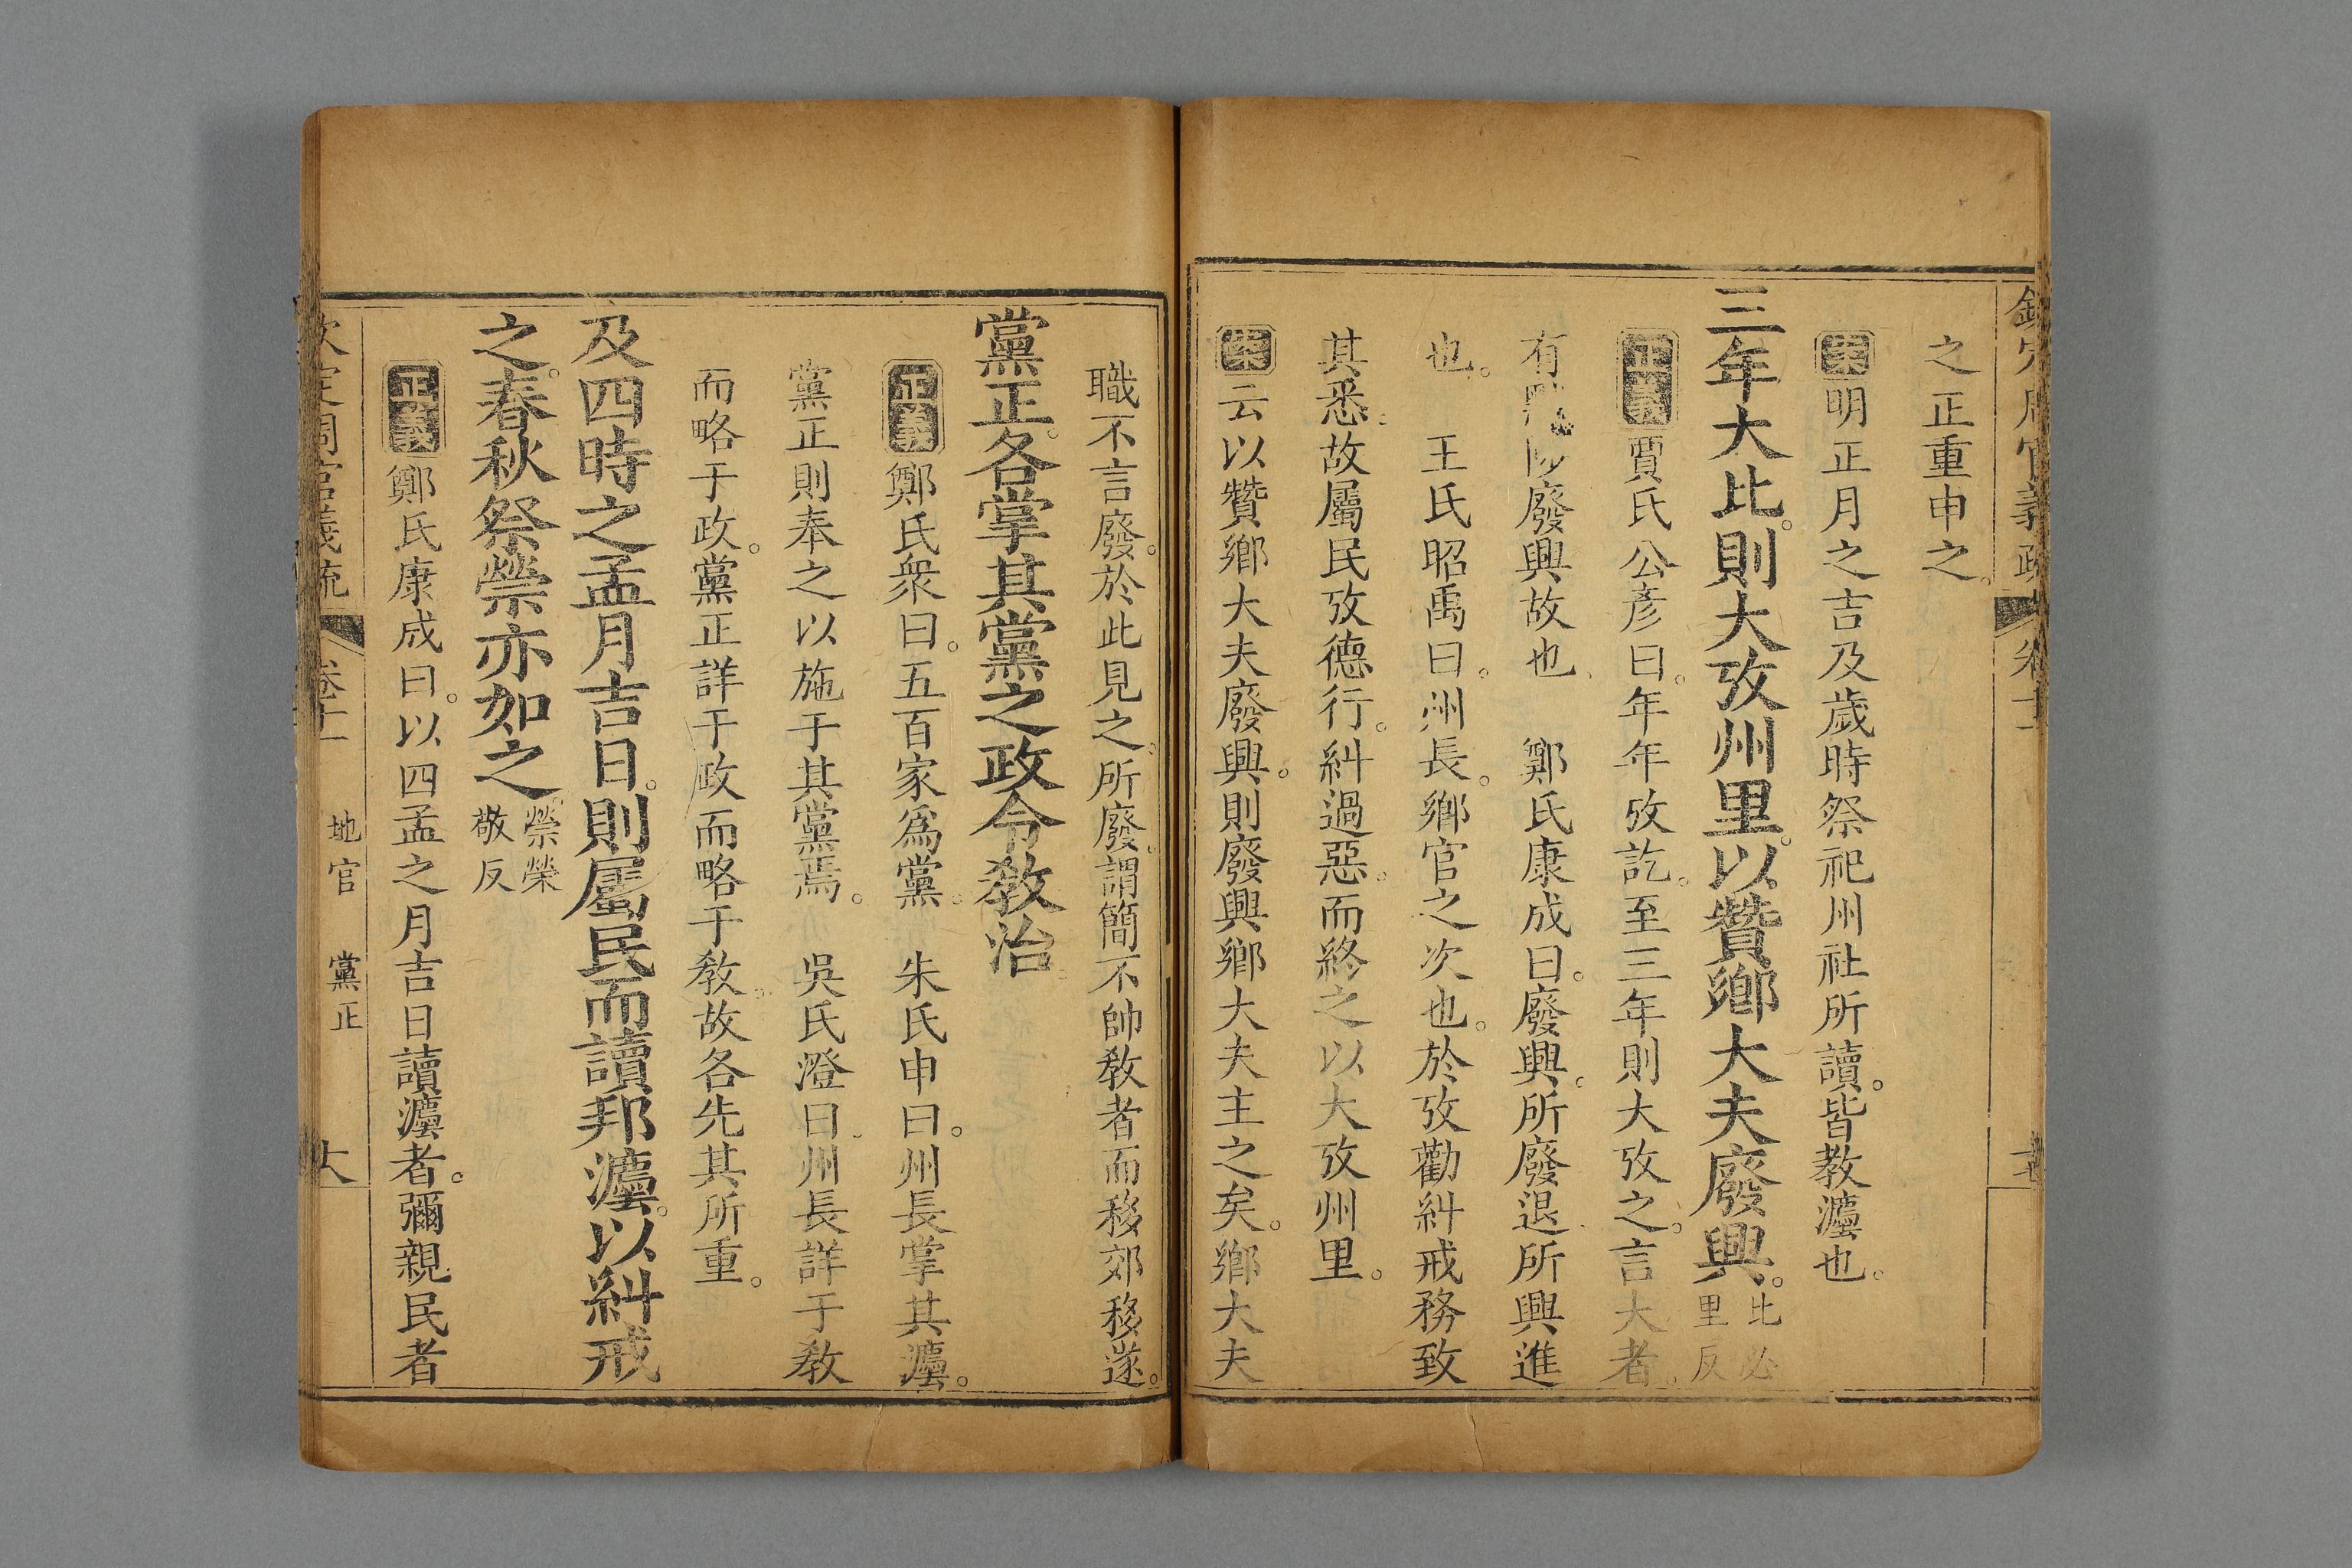 欽定周官義疏 卷十一
之正重申之。
案明正月之吉及歲時祭祀州社所讀。皆教灋也。
三年大比。則大攷州里。以贊鄉大夫廢興。比必里反
正義賈氏公彥曰。年年攷訖。至三年則大攷之。言大者。
有黜陟廢興故也 鄭氏康成曰。廢興。所廢退所興進
也。 王氏昭禹曰。州長。鄉官之次也。於攷勸糾戒務致
其悉。故屬民攷德行。糾過惡。而終之以大攷州里。
案云以贊鄉大夫廢興。則廢興鄉大夫主之矣。鄉大夫
職不言廢。於此見之。所廢。謂簡不帥教者而移郊移遂。
黨正。各掌其黨之政令教治。
正義鄭氏衆曰。五百家爲黨。 朱氏申曰。州長掌其灋。
黨正則奉之以施于其黨焉。 吳氏澄曰。州長詳于教
而略于政。黨正詳于政而略于教。故各先其所重。
及四時之孟月吉日。則屬民而讀邦灋。以糾戒
之。春秋祭禜亦如之。禜榮敬反
正義鄭氏康成曰。以四孟之月吉日讀灋者。彌親民者
欽定周官義疏 卷十一 地官 黨正